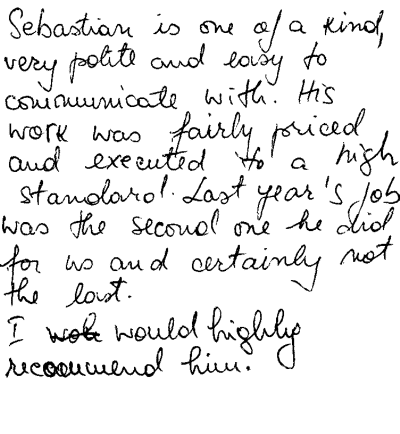 Sebastian is one of a kind,
very polite and easy to
communicate with. His
work was fairly priced
and executed to a high
standard. Last year's job
was the second one he did
for us and certainly not
the last.
I would highly
recommend him.